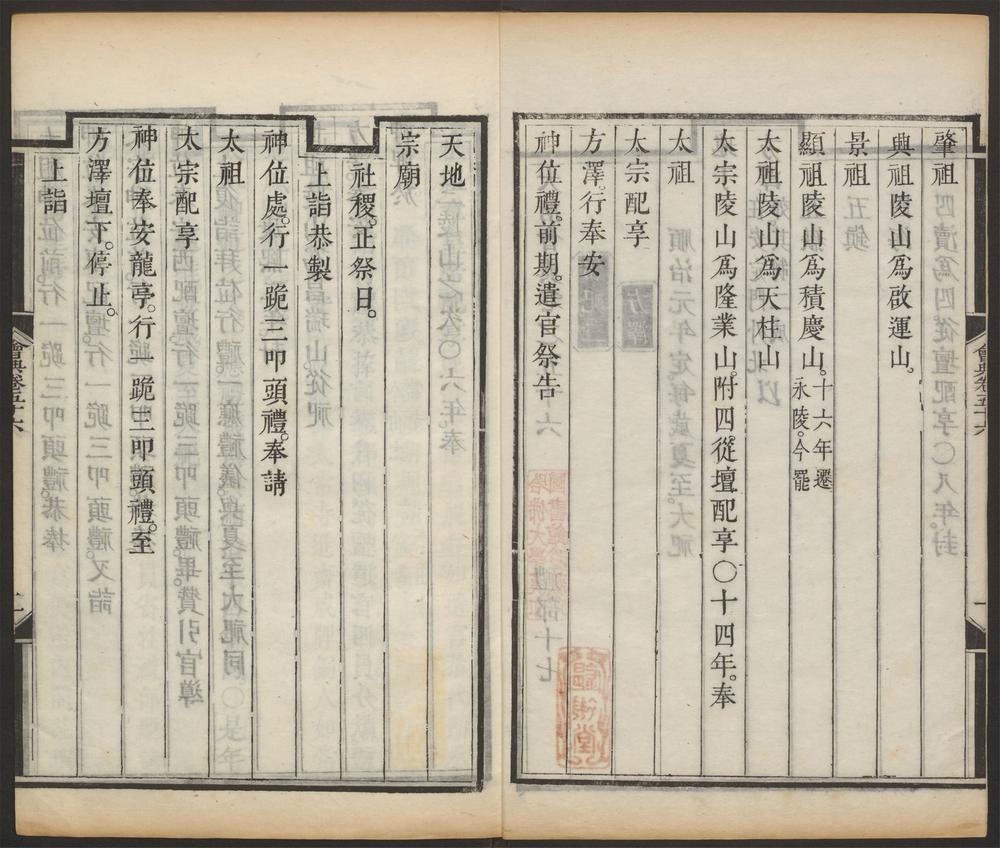 肇祖
興祖陵山爲啟運山。
景祖
顯祖陵山爲積慶山。十六年遷
永陵。今罷
太祖陵山爲天柱山
太宗陵山爲隆業山。附四從壇配享〇十四年。奉
太祖
太宗配享
方澤。行奉安
神位禮。前期。遣官祭告
天地
宗廟
社稷。正祭日。
上詣恭製
神位處。行一跪三叩頭禮。奉請
太祖
太宗配享
神位奉安龍亭。行一跪三叩頭禮。至
方澤壇下。停止。
上詣
會典卷五十六